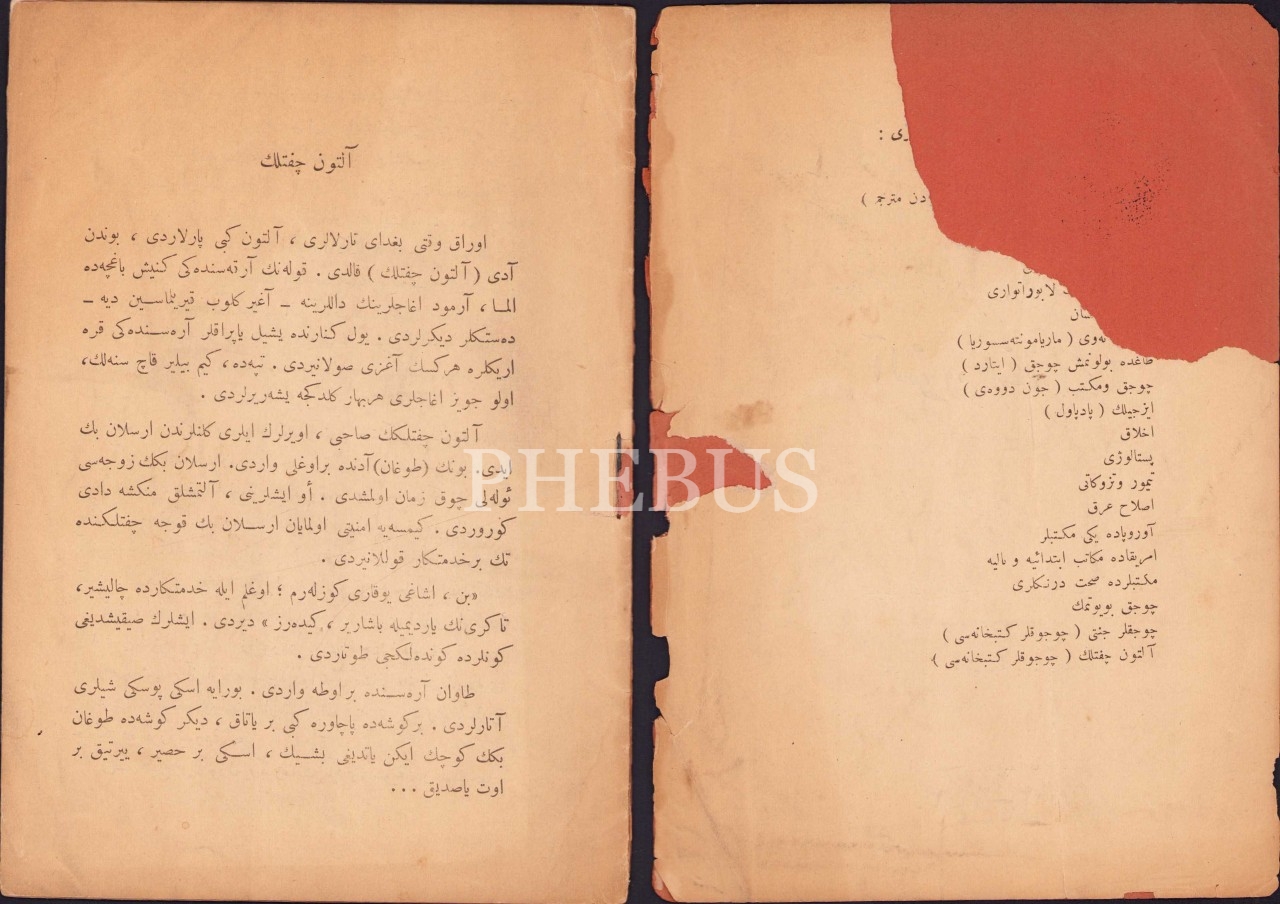 آلتون چفتلك
اوراق وقتی بغدای تارلالری ، آلتون کبی پارلاردی ، بوندن
آدی ( آلتون چفتلك ) قالدی . قوله‌نك آرته‌سنده‌کی کنیش باغچه‌ده
الما ، آرمود اغاجلرینك داللرینه ـ آغیر کلوب قیریلماسین دیه ـ
ده‌ستکلر دیکرلردی . یول کنارنده یشیل یاپراقلر آره‌سنده‌کی قره
اریکلره هرکسك آغزی صولانیردی . تپه‌ده ، کیم بیلیر قاچ سنه‌لك ،
اولو جویز اغاجلری هربهار کلدکجه یشه‌ریرلردی .
آلتون چفتلکك صاحبی ، اویرلرك ایلری کلنلرندن ارسلان بك
ایدی. بونك (طوغان) آدنده براوغلی واردی. ارسلان بکك زوجه‌سی
ئوله‌لی چوق زمان اولمشدی . أو ایشلرینی ، آلتمشلق منکشه دادی
کوروردی . کیمسه‌یه امنیتی اولمایان ارسلان بك قوجه چفتلکنده
تك برخدمتکار قوللانیردی .
«بن ، اشاغی یوقاری کوزله‌رم ؛ اوغلم ایله خدمتکارده چالیشیر ،
تاکری‌نك یاردیمیله باشاریر ، کیده‌رز » دیردی . ایشلرك صیقیشدیغی
کونلرده کونده‌لکجی طوتاردی .
طاوان آره‌سنده بر اوطه واردی . بورایه اسکی پوسکی شیلری
آتارلردی . برکوشه‌ده پاچاوره کبی بر یاتاق ، دیکر کوشه‌ده طوغان
بکك کوچك ایکن یاتدیغی بشیك ، اسکی بر حصیر ، ییرتیق بر
اوت یاصدیق ...
ری :
دن مترجم )
لابوراتواری
نه‌وی ( ماریامونته‌سسوریا )
طاغده بولونمش چوجق ( ایتارد )
چوجق ومکتب ( جون دووه‌ی )
ایزجیلك ( پادپاول )
اخلاق
پستالوژی
تیمور وتزوکاتی
اصلاح عرق
آوروپاده یکی مکتبلر
امریقاده مکاتب ابتدائیه و تالیه
مکتبلرده صحت درنکلری
چوجق بویوتمك
چوجقلر جنتی ( چوجوقلر کتبخانه‌سی )
آلتون چفتلك ( چوجوقلر کتبخانه‌سی )
PHEBUS